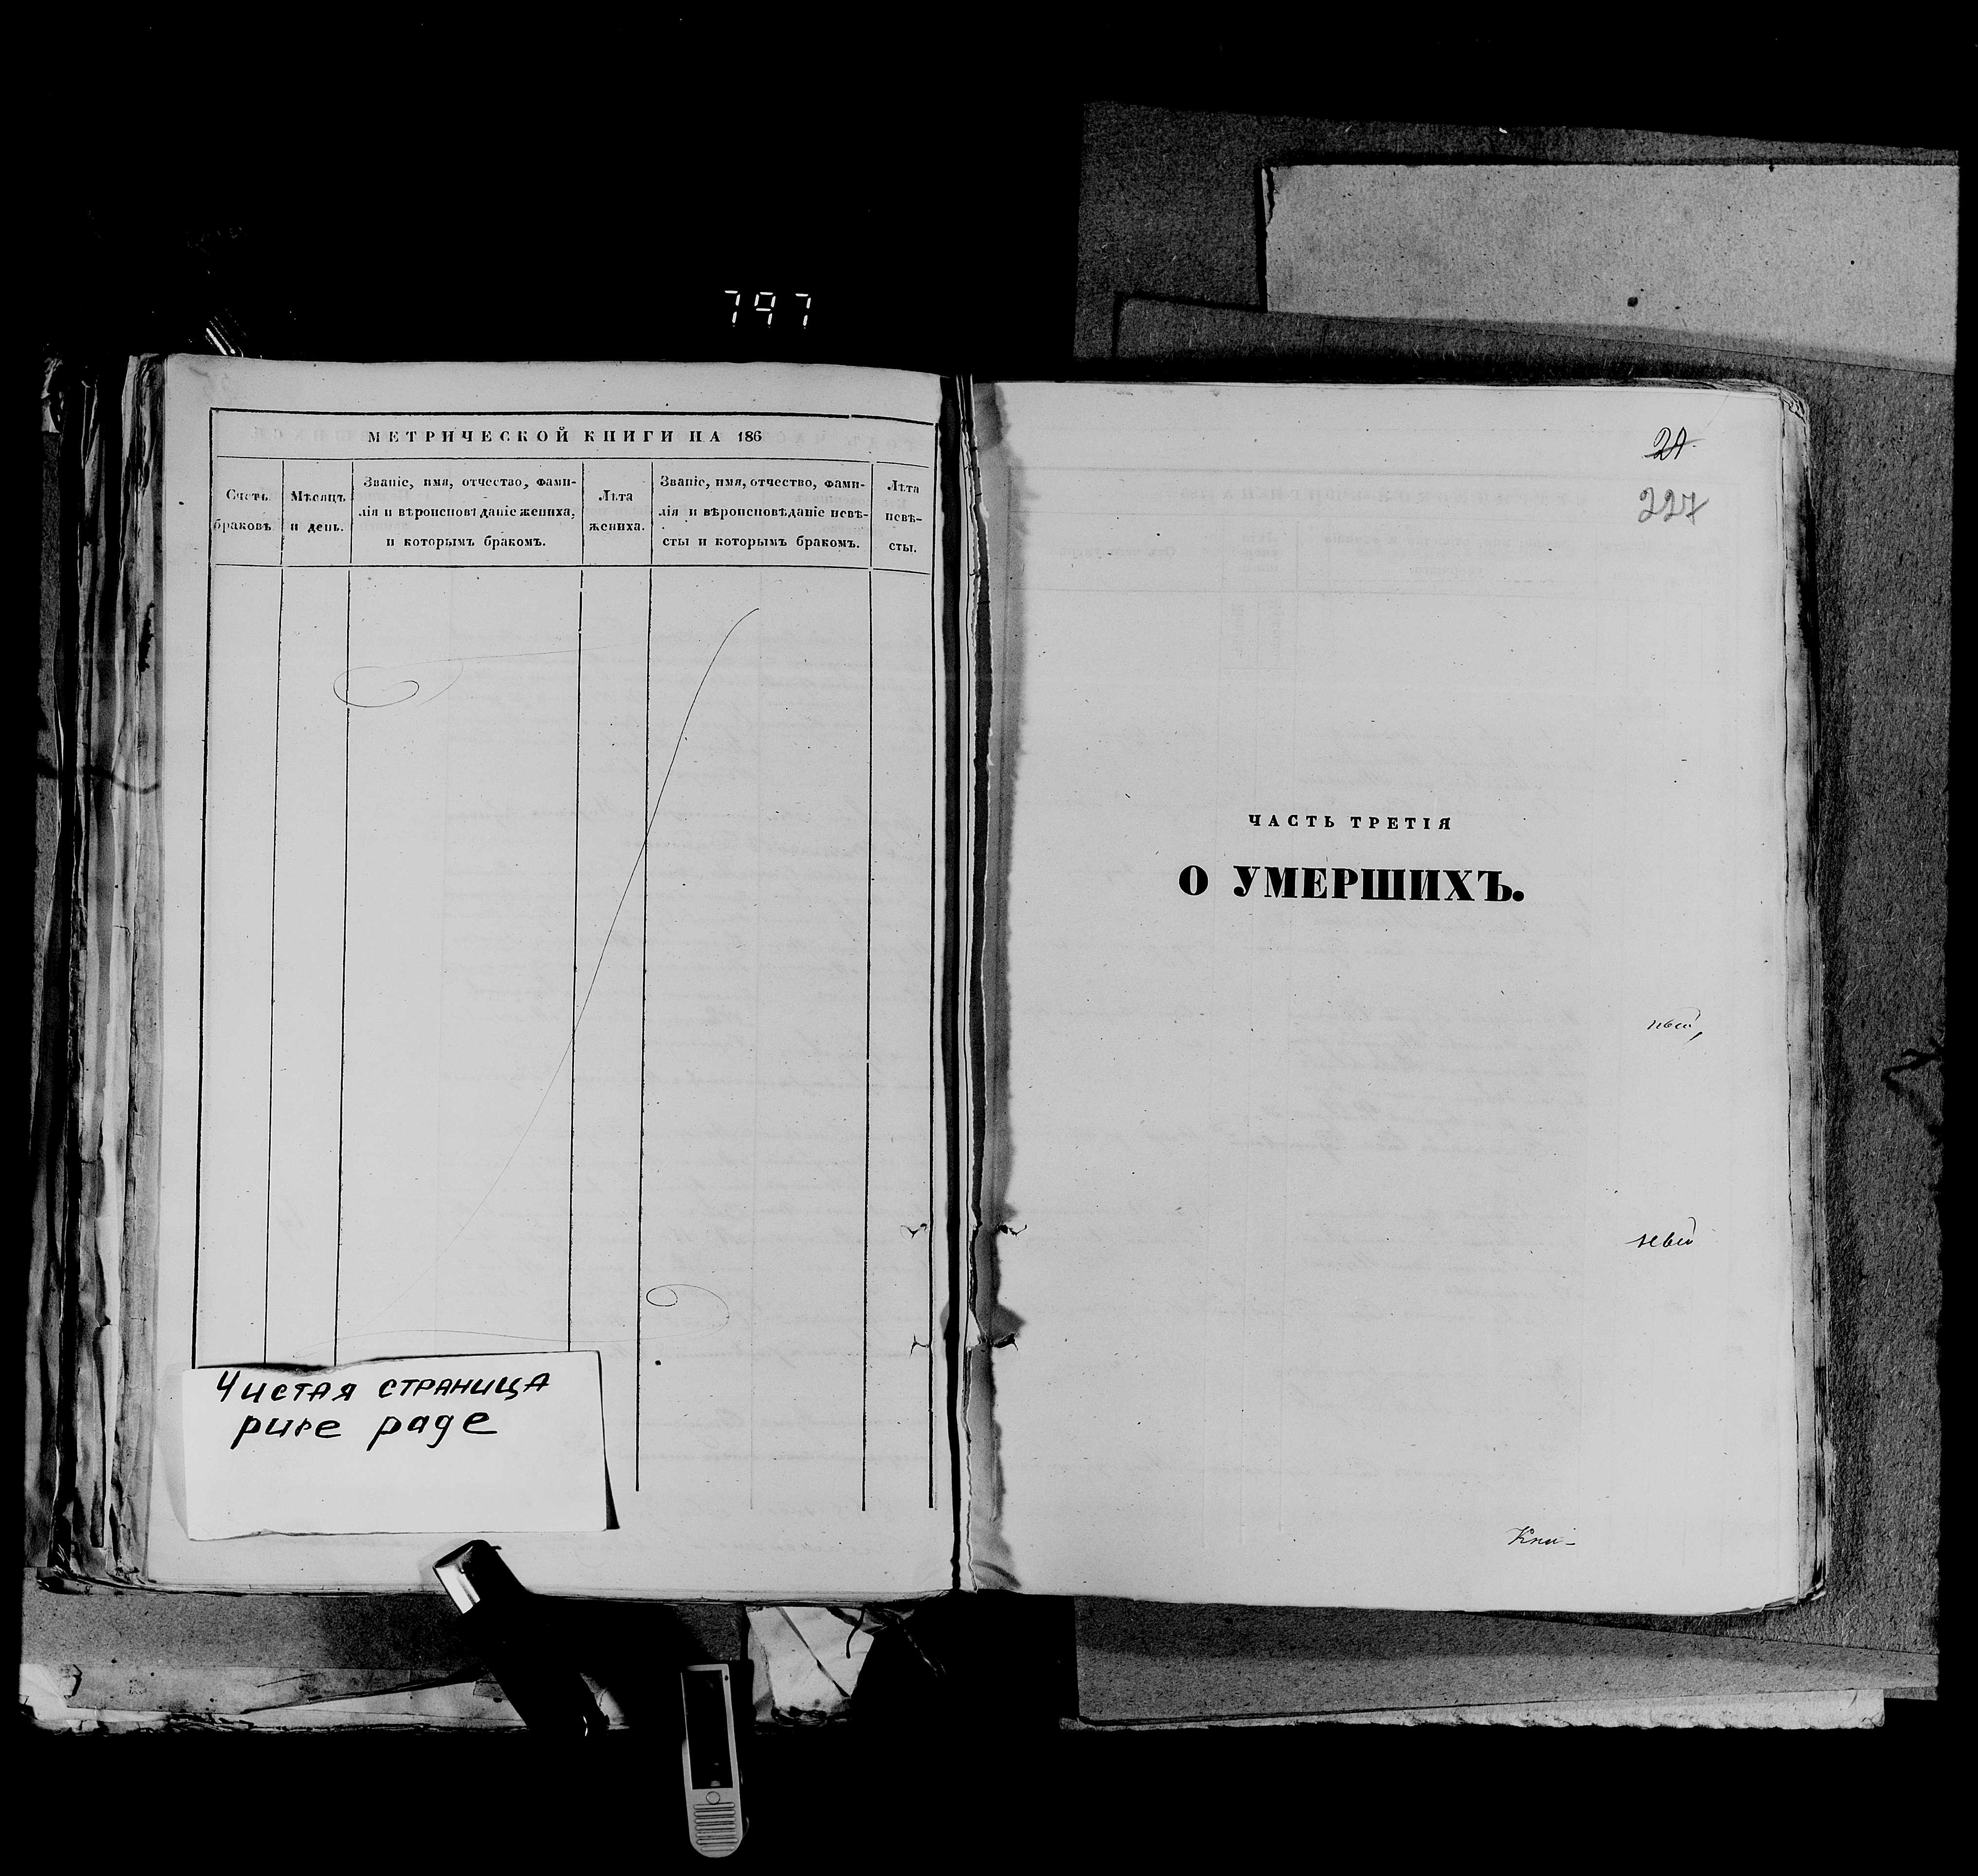 797
МЕТРИЧЕСКОЙ КНИГИ НА 186
Счетъ браковъ.
Мѣсяцъ и день.
Званіе, имя, отчество, фами-
лія и вѣроисповѣданіе жениха,
и которымъ бракомъ.
Лѣта
жениха.
Званіе, имя, отчество, фами-
лія и вѣроисповѣданіе невѣ-
сты и которымъ бракомъ.
Лѣта
невѣ-
сты.
Чистая страница
pure page
227
ЧАСТЬ ТРЕТІЯ
О УМЕРШИХЪ.
Кни-